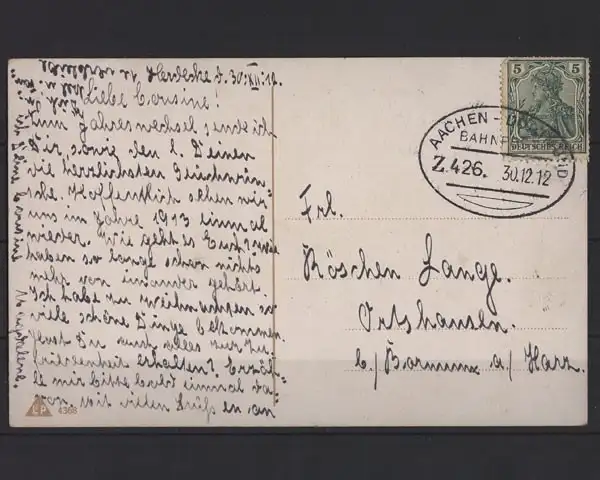 Herdecke d. 30.XII.12.
Liebe Cousine!
Zum Jahreswechsel sende ich
Dir sowie den l. Deinen
die herzlichsten Glückwün-
sche. Hoffentlich sehen wir
uns im Jahre 1913 einmal
wieder. Wie geht es Euch? wir
haben so lange schon nichts
mehr von einander gehört.
Ich habe zu Weihnachten so
viele schöne Dinge bekommen.
Hast Du auch alles zur Zu-
friedenheit erhalten? Erzäh-
le mir bitte bald einmal da-
von. Mit vielen Grüßen an
Deine Cousine
Magdalene.
4368
5 5
DEUTSCHES REICH
AACHEN -
BAHNP
Z.426. 30.12.12
Frl.
Röschen Lange.
Ortshausen.
b/ Bornum a/ Harz.